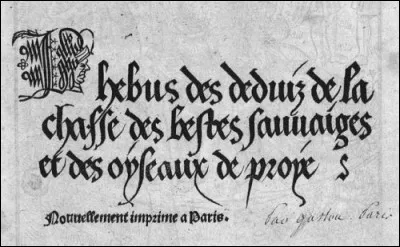 Phebus des deduiz de la
chasse des bestes sauuaiges
et des oyseaux de proye
Nouuellement imprime a Paris.
par gaston Paris